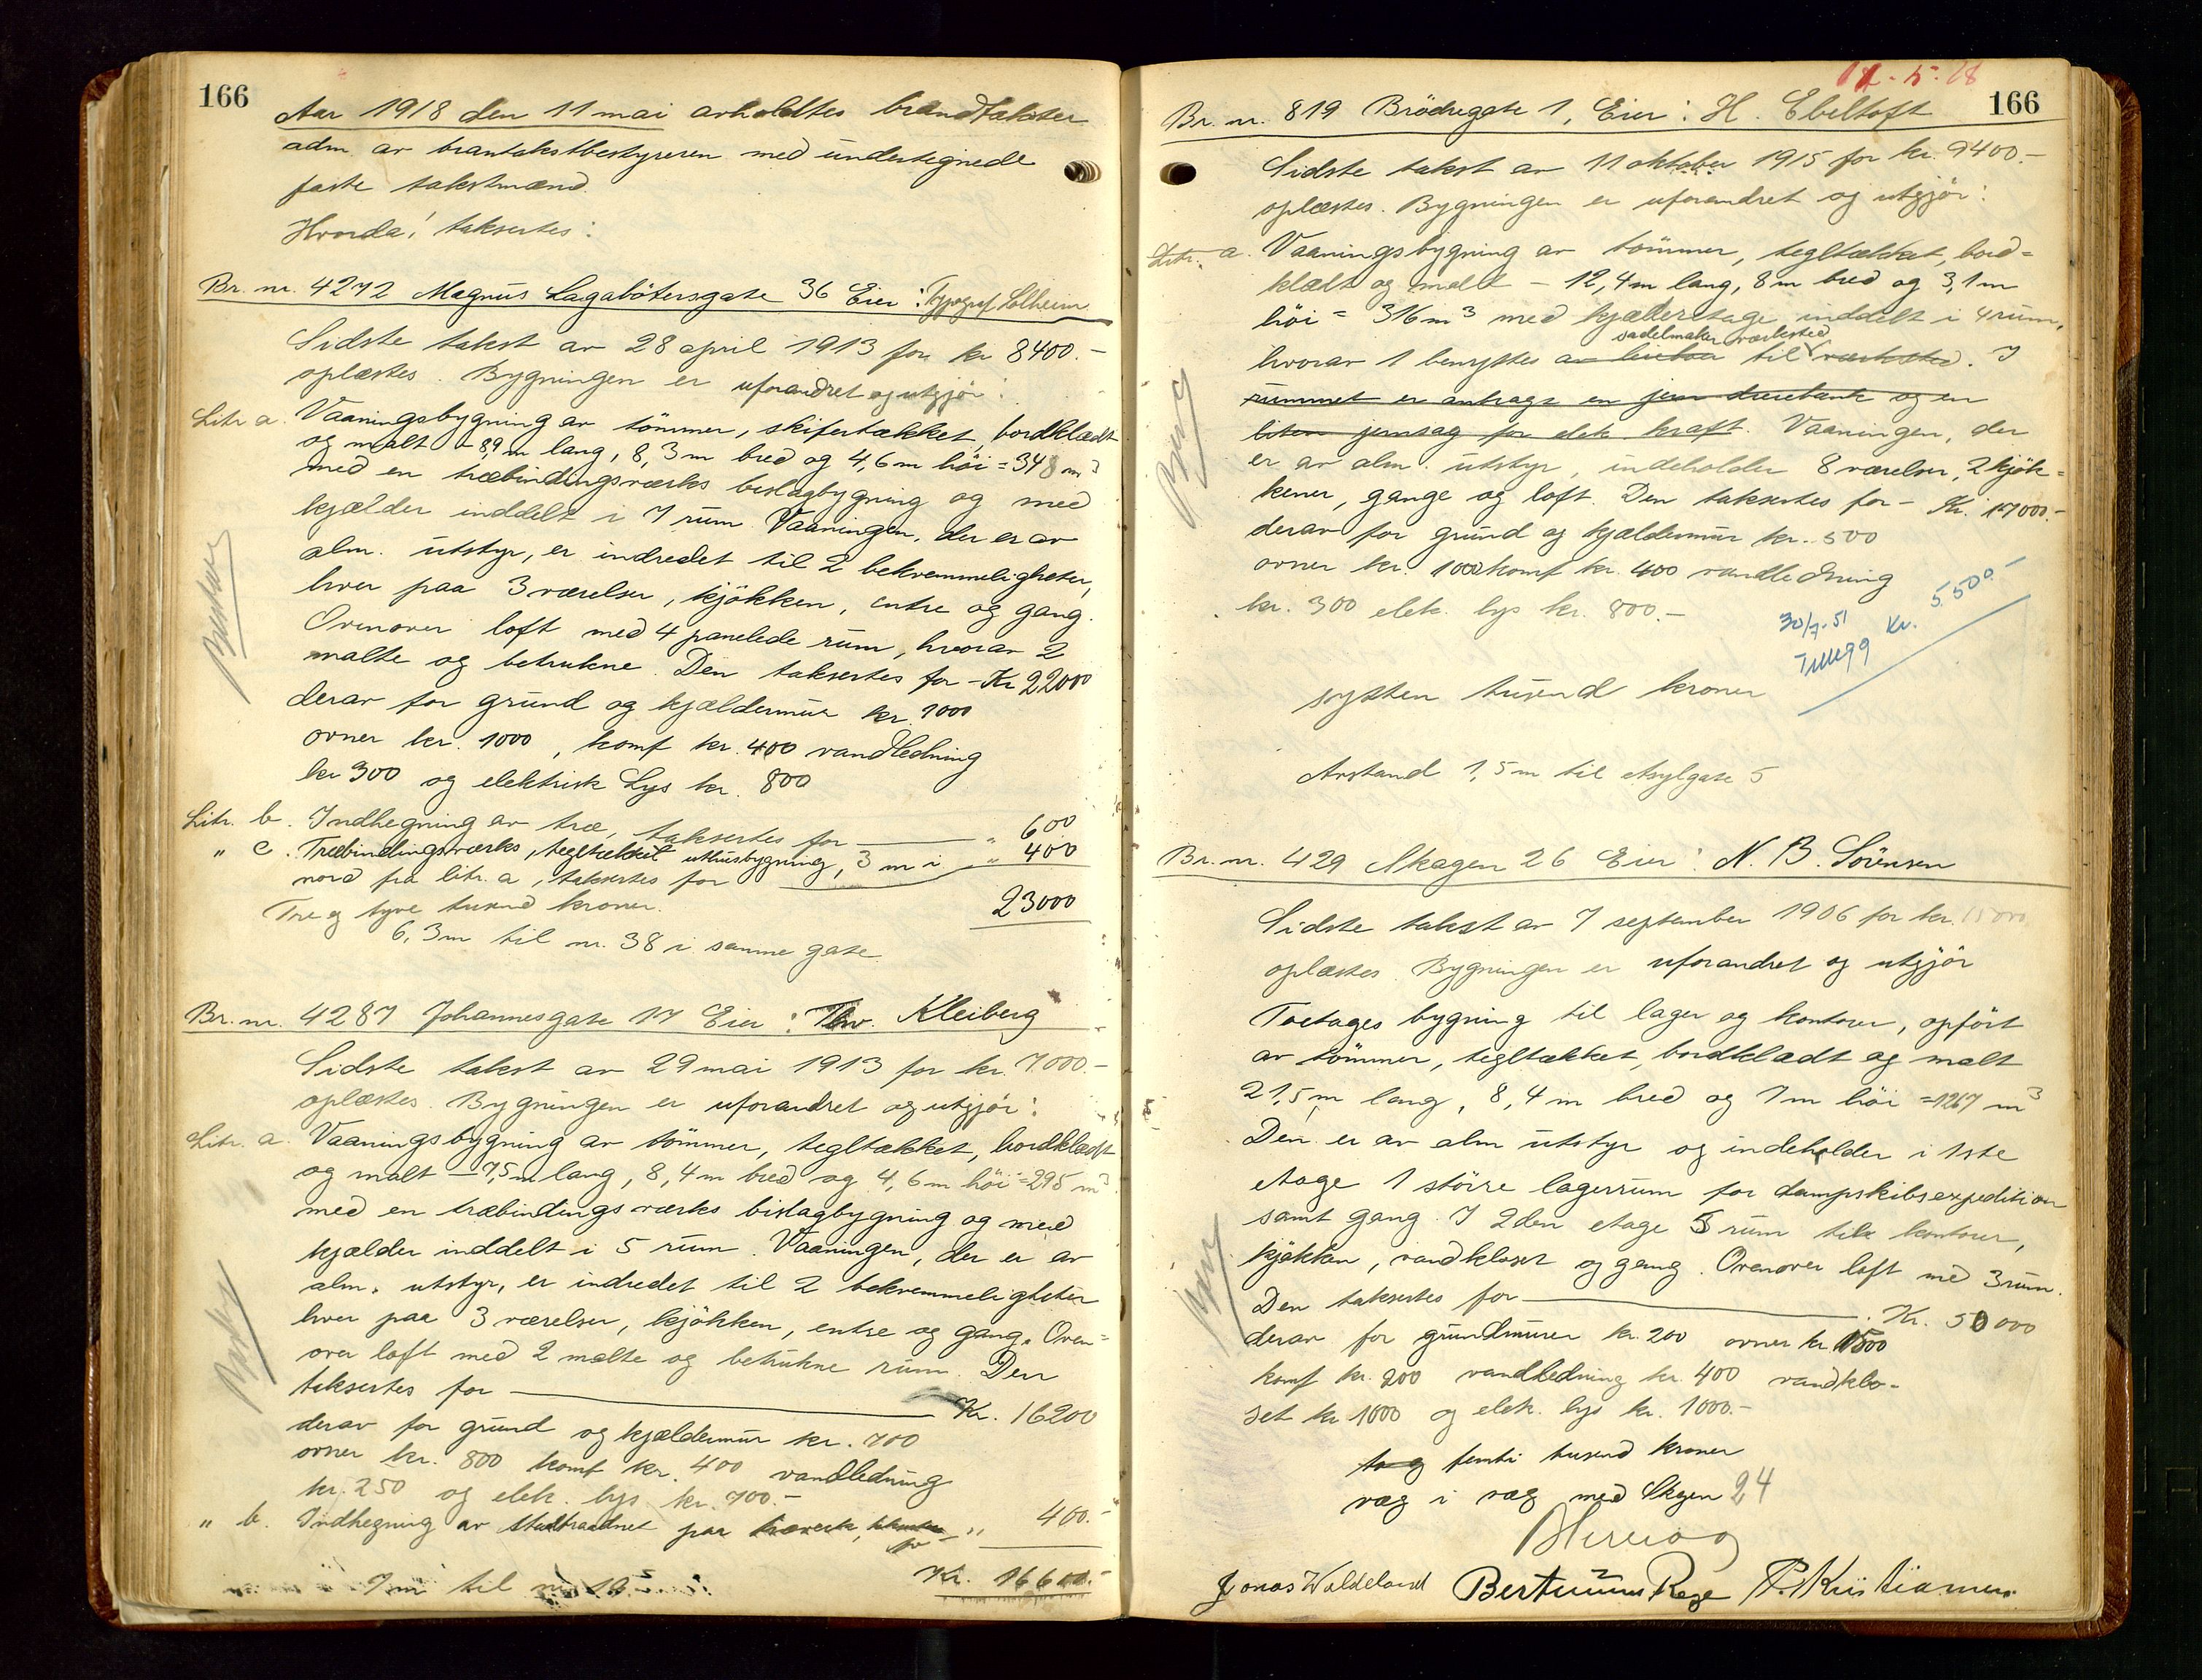 166
Aar 1918 den 11 mai avholdtes brandtakster
adm. av brantakstbestyreren med undertegnede
faste takstmænd.
Hvorda! taksertes:
Br. nr. 4272 Magnus Lagabötersgate 36 Eier: Typograf Solheim
Sidste takst av 28 april 1913 for kr 8400.-
oplæstes. Bygningen er uforandret og utgjör:
Litr. a. Vaaningsbygning av tömmer, skifertækket, bordklædt
og malt - 8,9 m lang, 8,3 m bred og 4,6 m höi = 348 m³
med en træbindingsværks bislagbygning og med
kjælder inddelt i 7 rum. Vaaningen, der er av
alm. utstyr, er indredet til 2 bekvemmeligheter,
hver paa 3 værelser, kjökken, entre og gang.
Ovenover loft med 4 panelede rum, hvorav 2
malte og betrukne. Den taksertes for - Kr 22000
derav for grund og kjældermur kr. 1000
ovner kr. 1000, komf kr. 400 vandledning
kr 300 og elektrisk Lys kr. 800
Litr. b. Indhegning av træ, taksertes for " 600
" c. Træbindingsværks, tegltækket uthusbygning, 3 m i " 400
nord fra litr. a, taksertes for
23000
Tre og tyve tusend kroner.
6,3 m til nr. 38 i samme gate
Br. nr. 4287 Johannesgate 17 Eier: Thv. Kleiberg
Sidste takst av 29 mai 1913 for kr. 7.000.-
oplæstes. Bygningen er uforandret og utgjör:
Litr. a. Vaaningsbygning av tömmer, tegltækket, bordklædt
og malt - 7,5 m lang, 8,4 m bred og 4,6 m höi = 295 m³
med en træbindingsværks bislagbygning og med
kjælder inddelt i 5 rum. Vaaningen, der er av
alm. utstyr, er indredet til 2 bekvemmeligheter
hver paa 3 værelser, kjökken, entre og gang. Oven=
over loft med 2 malte og betrukne rum. Den
taksertes for Kr. 16200
derav for grund og kjældermur kr. 700
ovner kr. 800 komf kr. 400 vandledning
kr. 250 og elek. lys kr. 700.-
" b. Indhegning av paa " 400.-
Kr. 16600.-
7 m til nr 19
166
Br. nr. 819 Brödregate 1, Eier: H. Ebeltoft
Sidste takst av 11 oktober 1915 for kr. 9400.-
oplæstes. Bygningen er uforandret og utgjör:
Litr. a. Vaaningsbygning av tömmer, tegltækket, bord=
klædt og malt - 12,4 m lang, 8 m bred og 3,1 m
höi = 316 m³ med kjæleretage inddelt i 4 rum,
sadelmaker værksted
hvorav 1 benyttes av til værksted. I
rummet er anbragt en jern dreiebænk og en
liten jernsag for elek. kraft. Vaaningen, der
er av alm. utstyr, indeholder 8 værelser, 2 kjök=
kener, gange og loft. Den taksertes for - Kr. 17000.-
derav for grund og kjældermur kr. 500
ovner kr. 1000 komf kr. 400 vandledning
kr. 300 elek. lys kr. 800.-
30/7-51
Tillegg Kr. 5.500.-
sytten tusend kroner
Avstand 1,5 m til Asylgate 5
Br. nr. 429 Skagen 26 Eier: N. B. Sörensen
Sidste takst av 7 september 1906 for kr. 15000
oplæstes. Bygningen er uforandret og utgjör
Toetages bygning til lager og kontorer, opfört
av tömmer, tegltækket, bordklædt og malt
21,5 m lang, 8,4 m bred og 7 m höi = 1267 m³
Den er av alm utstyr og indeholder i 1ste
etage 1 större lagerrum for dampskibsexpedition
samt gang. I 2den etage 5 rum til kontorer,
kjökken, vandkloset og gang. Ovenover loft med 3 rum.
Den taksertes for Kr. 50000
derav for grundmurer kr. 200 ovner kr 1500
komf kr. 200 vandledning kr. 400 vandklo-
set kr 1000 og elek. lys kr. 1000.-
to og femti tusend kroner
væg i væg med Skagen 24
Jonas Waldeland P. Kristiansen